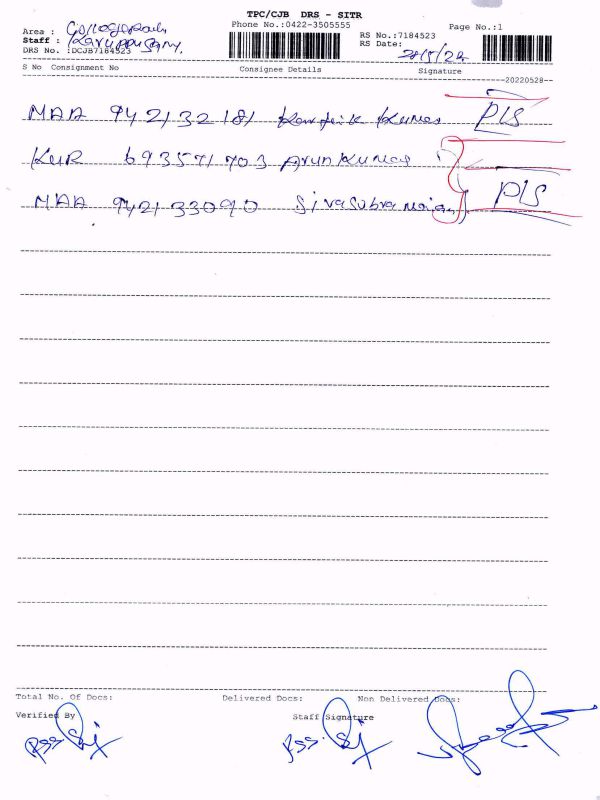 TPC/CJB DRS - SITR
Phone No.:0422-3505555
Page No.:1
Area :
Staff : Karuppusamy.
DRS No. :DCJB7184523
RS No.:7184523
RS Date: 28/5/22
S No Consignment No Consignee Details Signature
--20220528--
MAA 942132181 Karthik Kumar PLS
KUR 693571703 Arun Kumar
MAA 942133090 Sivasubramanian PLS
Total No. Of Docs: Delivered Docs: Non Delivered Docs:
Verified By Staff Signature